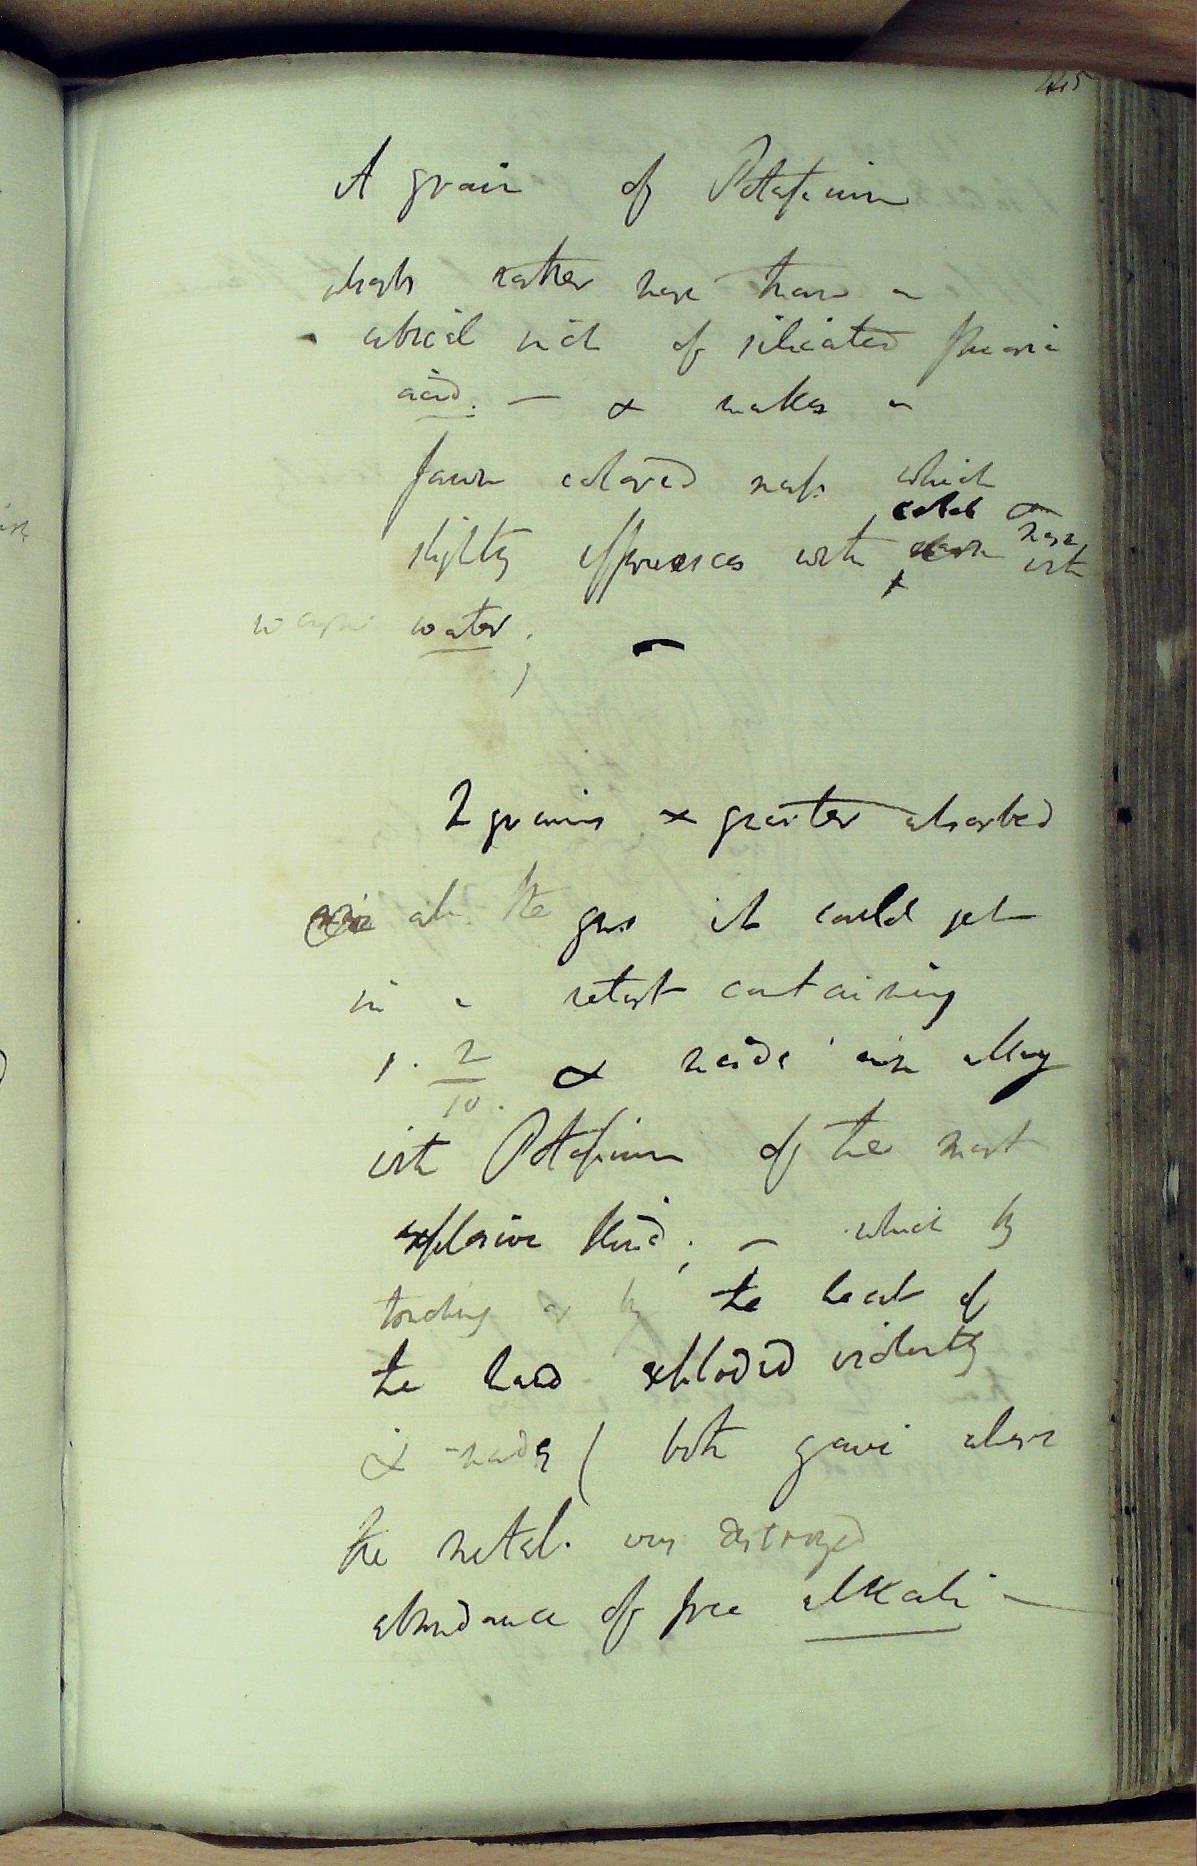 445
A grain of Potassium
absorbs rather more than a
cubical inch of silicated fluoric
acid. — & makes a
fawn colored mass which
slightly effervesces with cold & more with
warm water; —
2 grains & quarter absorbed
all the gas it could get
in a retort containing
1. 2/10. & made an alloy
with Potassium of the most
explosive kind; — which by
touching or by the heat of
the hand exploded violently
& made ( both gave above
the metal. was destroyed
abundance of free alkali —